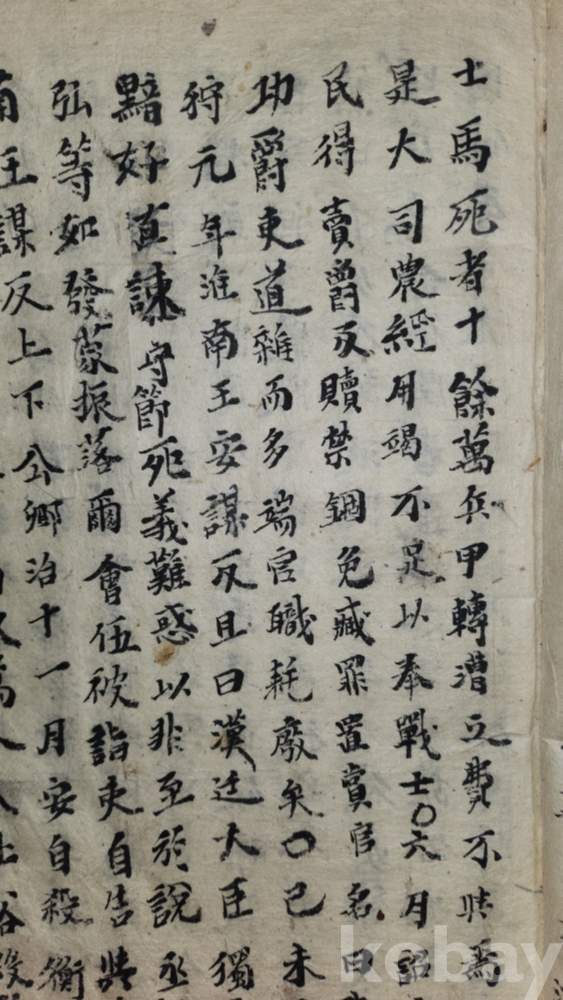 士馬死者十餘萬兵甲轉漕之費不與焉
是大司農經用竭不足以奉戰士○六月詔
民得賣爵及贖禁錮免臧罪置賞官名曰
功爵吏道雜而多端官職耗廢矣○己未
狩元年淮南王安謀反且曰漢廷大臣獨
黯好直諫守節死義難惑以非至於說丞
弘等如發蒙振落爾會伍被詣吏自告與
南王謀反上下公卿治十一月安自殺衡
kobay